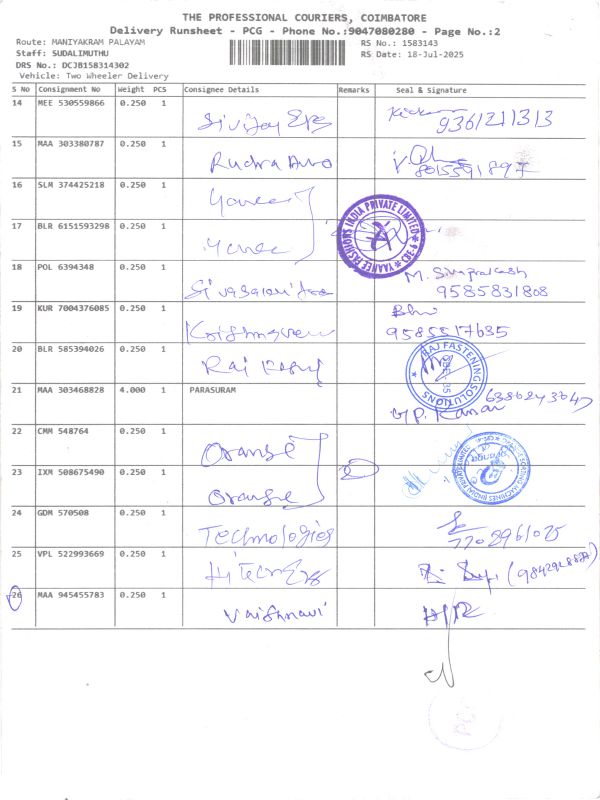 THE PROFESSIONAL COURIERS, COIMBATORE
Delivery Runsheet - PCG - Phone No.:9047080280 - Page No.:2
Route: MANIYAKRAM PALAYAM RS No.: 1583143
Staff: SUDALIMUTHU RS Date: 18-Jul-2025
DRS No.: DCJB158314302
Vehicle: Two Wheeler Delivery
S No Consignment No Weight PCS Consignee Details Remarks Seal & Signature
14 MEE 530559866 0.250 1 9361211313
15 MAA 303380787 0.250 1 Rudra Auro 8015591897
16 SLM 374425218 0.250 1 Yanee
17 BLR 6151593298 0.250 1 Yanee
YAANEE FASHIONS INDIA PRIVATE LIMITED
18 POL 6394348 0.250 1 M. Sivaprakash
9585831808
19 KUR 7004376085 0.250 1
9585517635
20 BLR 585394026 0.250 1 Raj
RAJ FASTENING SOLUTIONS
21 MAA 303468828 4.000 1 PARASURAM
22 CMM 548764 0.250 1 Orange
23 IXM 508675490 0.250 1 Orange 2
SORTING MACHINES (INDIA) PRIVATE LIMITED
24 GDM 570508 0.250 1 Technologies 7702961025
25 VPL 522993669 0.250 1 Hitech
26 MAA 945455783 0.250 1 Vaishnavi